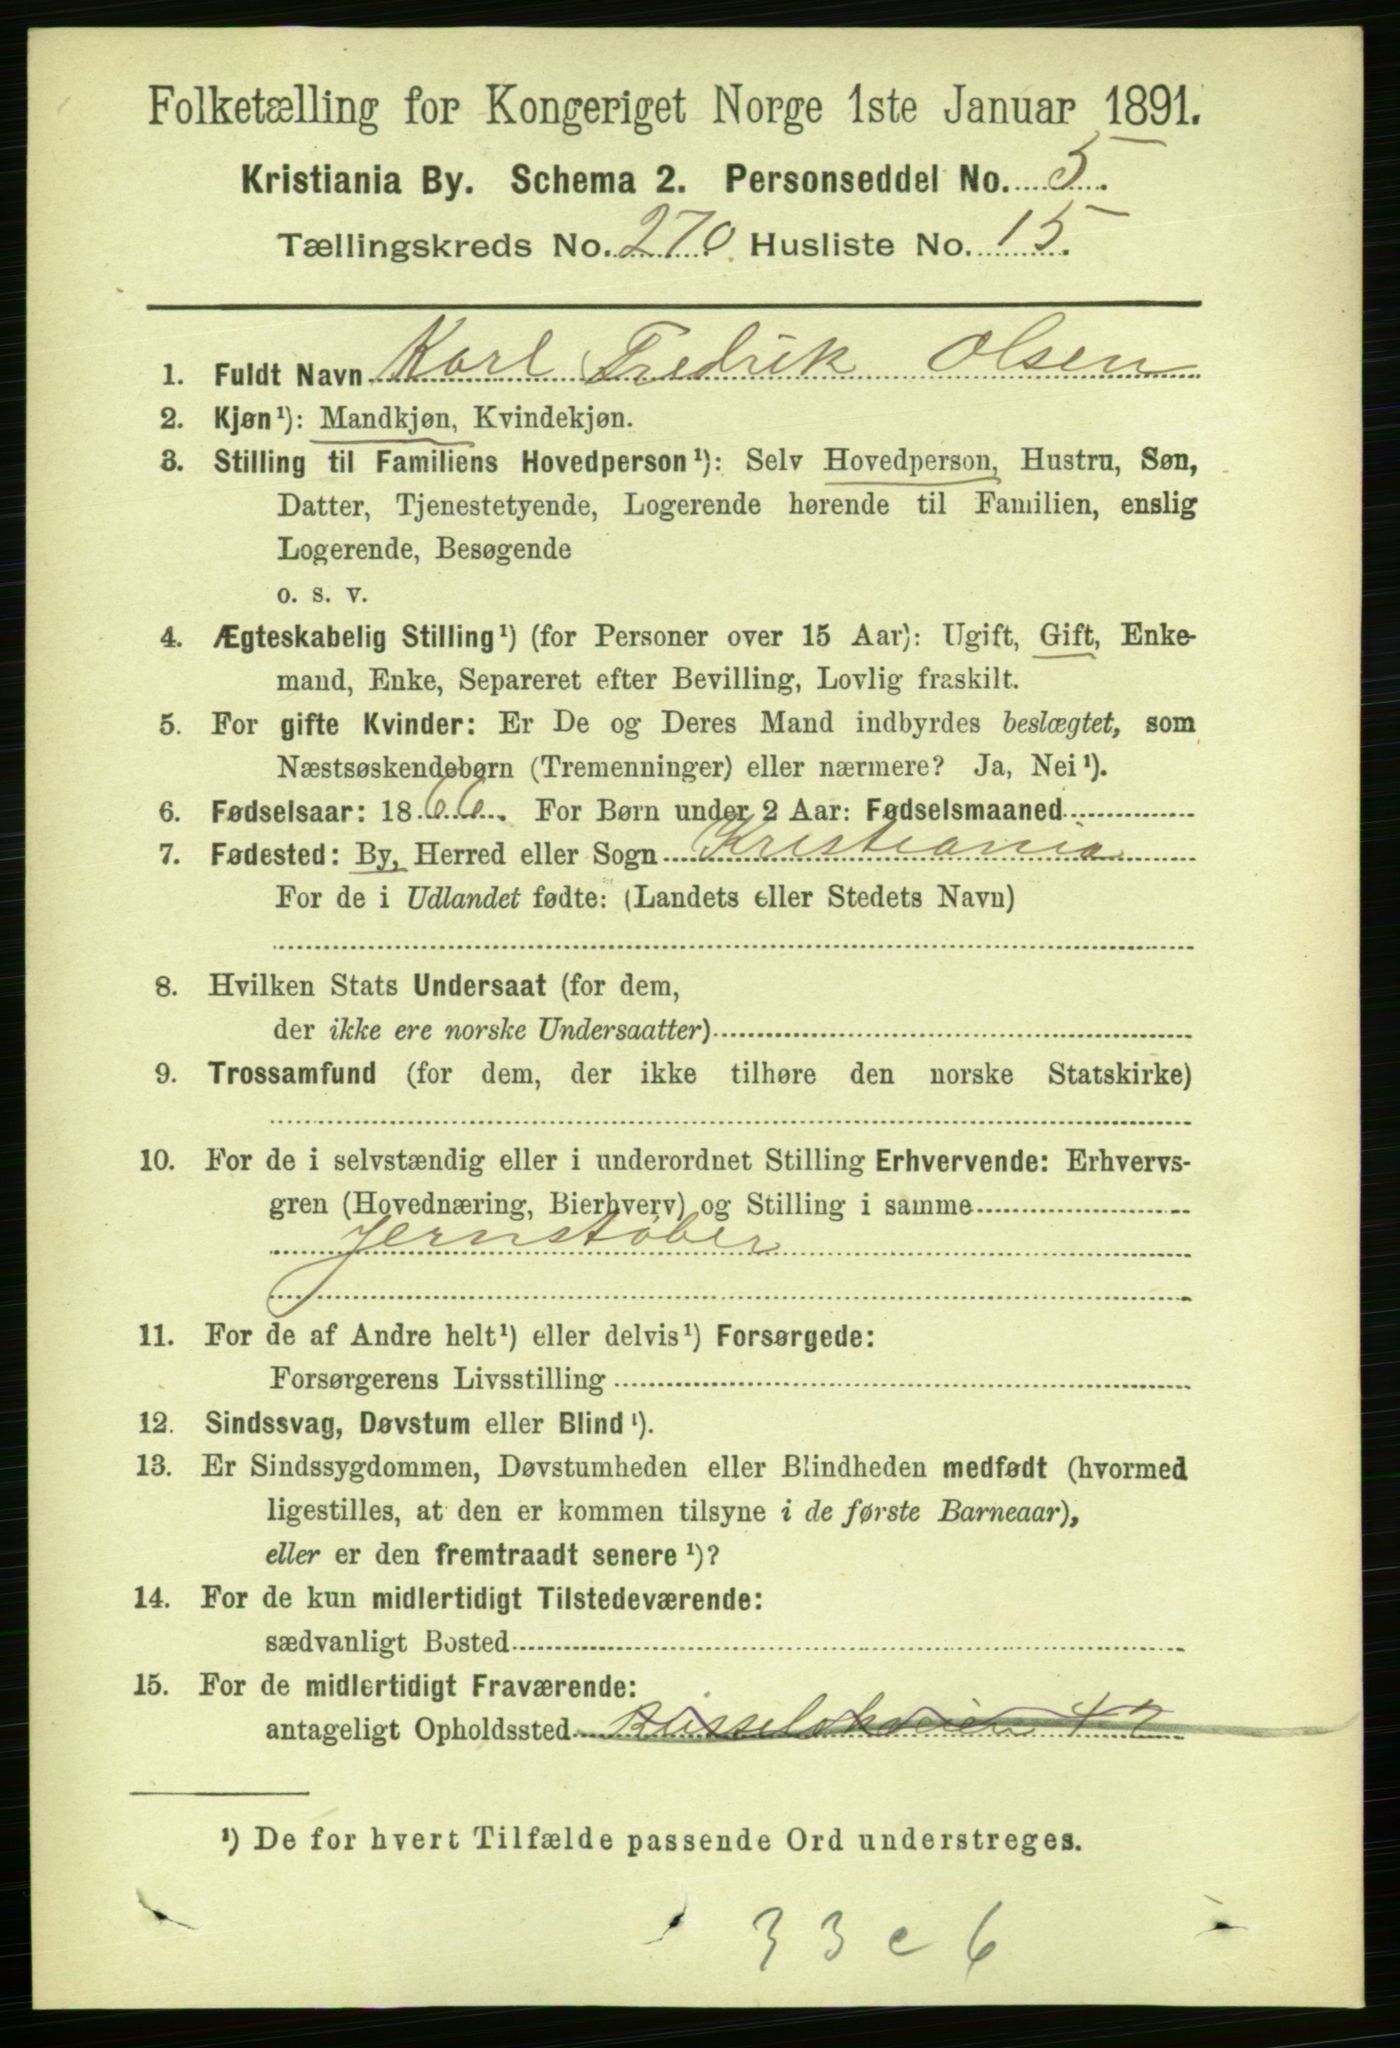 Folketælling for Kongeriget Norge 1ste Januar 1891.
Kristiania By. Schema 2. Personseddel No. 5.
Tællingskreds No. 270 Husliste No. 15.
1. Fuldt Navn Karl Fredrik Olsen
2. Kjøn¹): Mandkjøn, Kvindekjøn.
3. Stilling til Familiens Hovedperson¹): Selv Hovedperson, Hustru, Søn,
Datter, Tjenestetyende, Logerende hørende til Familien, enslig
Logerende, Besøgende
o. s. v.
4. Ægteskabelig Stilling¹) (for Personer over 15 Aar): Ugift, Gift, Enke-
mand, Enke, Separeret efter Bevilling, Lovlig fraskilt.
5. For gifte Kvinder: Er De og Deres Mand indbyrdes beslægtet, som
Næstsøskendebørn (Tremenninger) eller nærmere? Ja, Nei¹).
6. Fødselsaar: 1866. For Børn under 2 Aar: Fødselsmaaned
7. Fødested: By, Herred eller Sogn Kristiania
For de i Udlandet fødte: (Landets eller Stedets Navn)
8. Hvilken Stats Undersaat (for dem,
der ikke ere norske Undersaatter)
9. Trossamfund (for dem, der ikke tilhøre den norske Statskirke)
10. For de i selvstændig eller i underordnet Stilling Erhvervende: Erhvervs-
gren (Hovednæring, Bierhverv) og Stilling i samme
Jernstøber
11. For de af Andre helt¹) eller delvis¹) Forsørgede:
Forsørgerens Livsstilling
12. Sindssvag, Døvstum eller Blind¹).
13. Er Sindssygdommen, Døvstumheden eller Blindheden medfødt (hvormed
ligestilles, at den er kommen tilsyne i de første Barneaar),
eller er den fremtraadt senere¹)?
14. For de kun midlertidigt Tilstedeværende:
sædvanligt Bosted
15. For de midlertidigt Fraværende:
antageligt Opholdssted 42
¹) De for hvert Tilfælde passende Ord understreges.
33 c 6